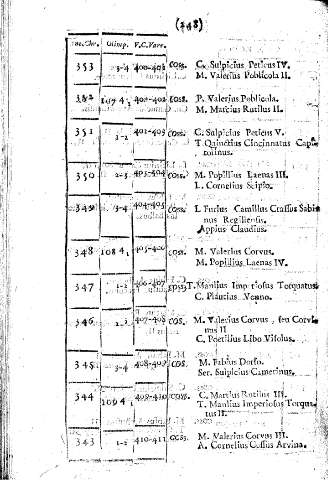 (248)
Olimp. V.C.Varr.
353 3-4 400-401 COSS. C. Sulpicius Peticus IV.
M. Valerius Poblicola II.
352 401-402 COSS. P. Valerius Poblicola.
M. Marcius Rutilus II.
351 1-2 402-403 COSS. C. Sulpicius Peticus V.
T. Quinctius Cincinnatus Capi-
tolinus.
350 2-3 403-404 COSS. M. Popillius Laenas III.
L. Cornelius Scipio.
349 3-4 404-405 COSS. L. Furius Camillus Crassus Sabi-
nus Regillensis.
Appius Claudius.
348 COSS. M. Valerius Corvus.
M. Popillius Laenas IV.
347 1-2 406-407 T. Manlius Imperiosus Torquatus
C. Plautius Venno.
346 2-3 407-408 COS. M. Valerius Corvus, seu Corvi-
nus II
C. Poetilius Libo Visolus.
345 3-4 408-409 COS. M. Fabius Dorso.
Ser. Sulpicius Camerinus.
344 409-410 C. Martius Rutilus III.
T. Manlius Imperiosus Torqua-
tus II.
343 1-2 410-411 COSS. M. Valerius Corvus III.
A. Cornelius Cossus Arvina.